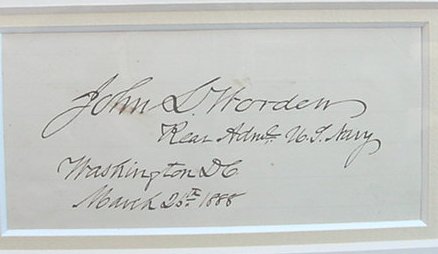 John L. Worden
Rear Adml. U.S. Navy
Washington D.C.
March 1888